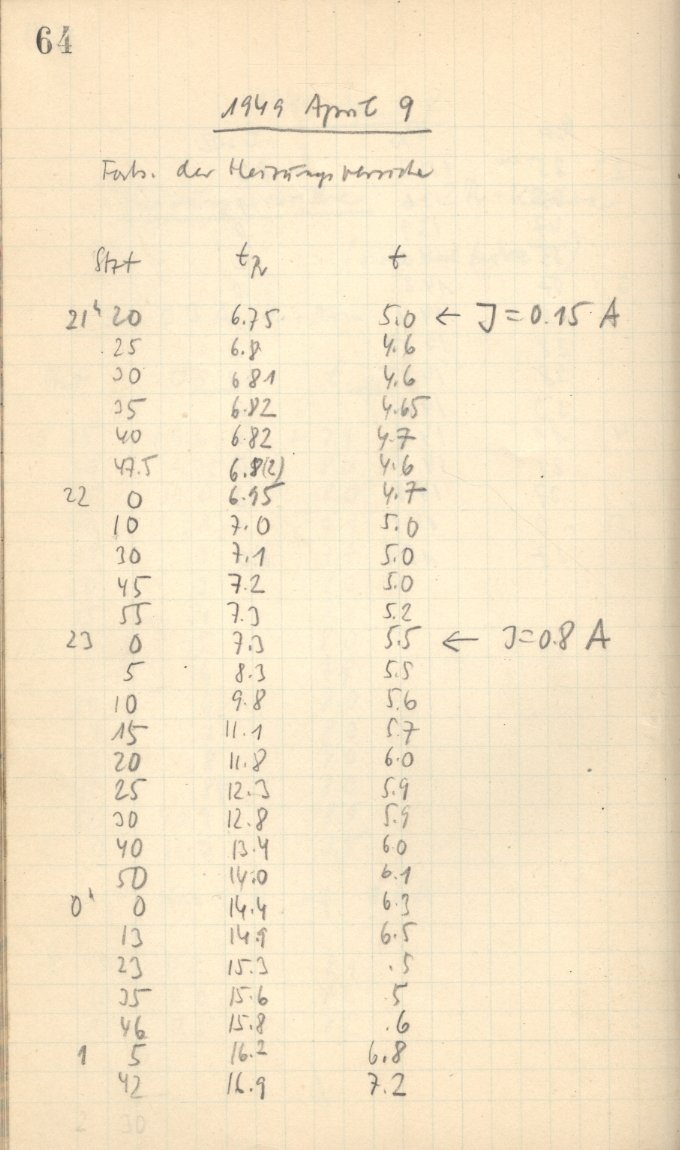 64
1949 April 9
Forts. der Heizungsversuche
Stzt tR t
21h 20 6.75 5.0 ← J = 0.15 A
25 6.8 4.6
30 6.81 4.6
35 6.82 4.65
40 6.82 4.7
47.5 6.8(2) 4.6
22 0 6.95 4.7
10 7.0 5.0
30 7.1 5.0
45 7.2 5.0
55 7.3 5.2
23 0 7.3 5.5 ← J=0.8 A
5 8.3 5.5
10 9.8 5.6
15 11.1 5.7
20 11.8 6.0
25 12.3 5.9
30 12.8 5.9
40 13.4 6.0
50 14.0 6.1
0h 0 14.4 6.3
13 14.9 6.5
23 15.3 .5
35 15.6 .5
46 15.8 .6
1 5 16.2 6.8
42 16.9 7.2
2 30